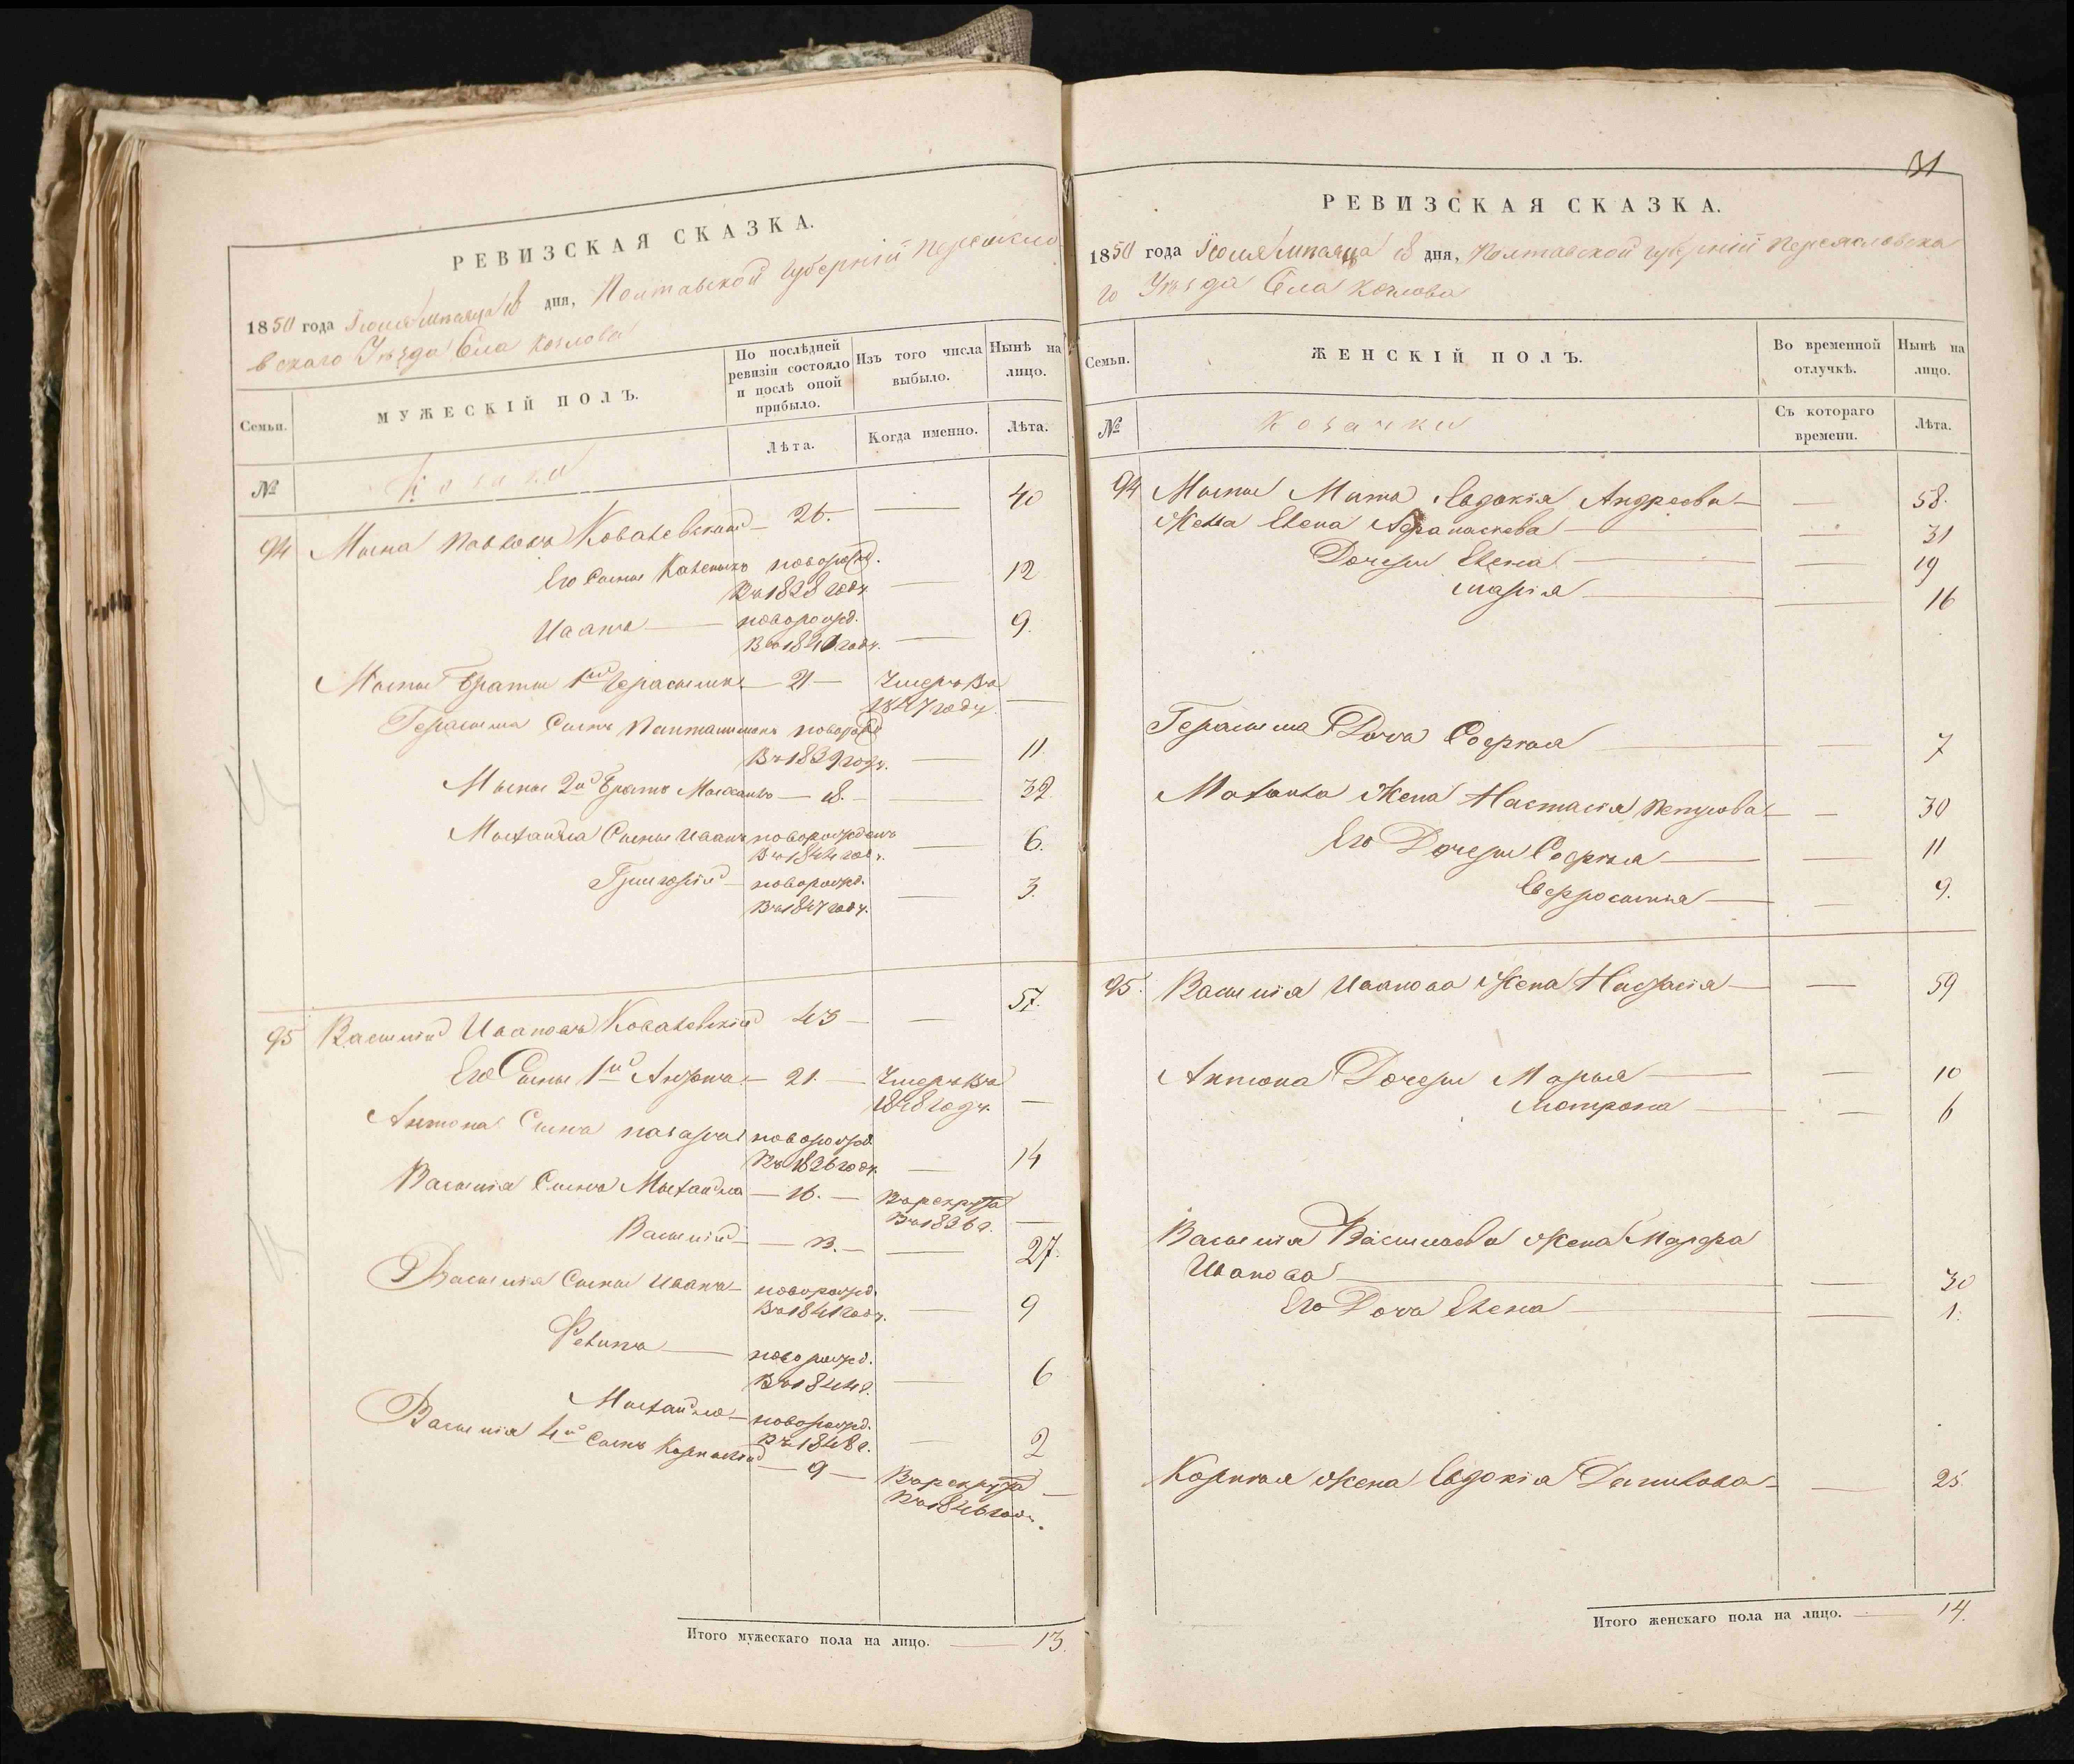 РЕВИЗСКАЯ СКАЗКА.
1850 года Іюля мѣсяца 18 дня, Полтавской Губерніи Переясло
вскаго Уѣзда Села Козлова
Семьи.
МУЖЕСКІЙ ПОЛЪ.
По послѣдней ревизіи состояло и послѣ оной прибыло.
Изъ того числа выбыло.
Нынѣ на лицо.
№
Козаки
Лѣта.
Когда именно.
Лѣта.
94 Павловъ Коваленскій — 26. — 40
Его Сынъ новорожд.
Въ 1838 году — 12
Иванъ — новорожд.
Въ 1841 году. — 9.
Братъ 1й Герасимъ — 21 — Умеръ въ
1847 году. —
Герасима Сынъ Пантилимонъ новорожд
Въ 1839 году. — 11
2й Братъ Михаилъ — 18. — 32
Михаила Сынъ Иванъ новорожденъ
Въ 1844 году. — 6.
Григорій — новорожд.
Въ 1847 году. — 3.
95 Василій Ивановъ Коваленскій 43 — — 57.
Его Сынъ 1й Антонъ — 21. — Умеръ въ
1848 году. —
Антона Сынъ новорожд.
Въ 1836 году. — 14
Василія Сынъ Михаила — 16. — Въ рекруты
Въ 1836 г. —
Василій — 13. — — 27.
Василія Сынъ Иванъ — новорожд.
Въ 1841 году. — 9
новорожд.
Въ 1844 г. — 6
Михаило — новорожд.
Въ 1848 г. — 2
Василія 4й Сынъ Корнилій — 9 — Въ рекруты —
Въ 1846 году.
Итого мужескаго пола на лицо. — 13.
31
РЕВИЗСКАЯ СКАЗКА.
1850 года Іюля мѣсяца 18 дня, Полтавской губерніи Переясловска
го Уѣзда Села Козлова
Семьи.
ЖЕНСКІЙ ПОЛЪ.
Во временной отлучкѣ.
Нынѣ на лицо.
№
Козачки
Съ котораго времени.
Лѣта.
94 Мать Евдокія Андреева — — 58.
Жена Елена Афанасиева — — 31
Дочери Елена — — 19
Марія — — 16
Герасима Дочь Софія — — 7
Михаила Жена Настасія Петрова — — 30
Его Дочери Софія — — 11
Евфросинія — — 9.
95. Василія Иванова Жена Настасія — — 59
Антона Дочери Марья — — 10
Матрона — — 6
Василія Васильева жена Марфа
Иванова — — 30
Его Дочь Елена — — 1.
Корнилія жена Евдокія Данилова — — 25.
Итого женскаго пола на лицо. — 14.